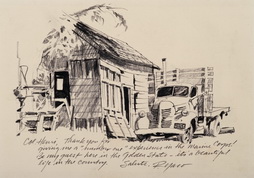 Col. Henri, Thank you for
giving me a "number one" experience in the Marine Corps!
Be my guest here in the Golden State - it's a beautiful
life in this country.
Salute,